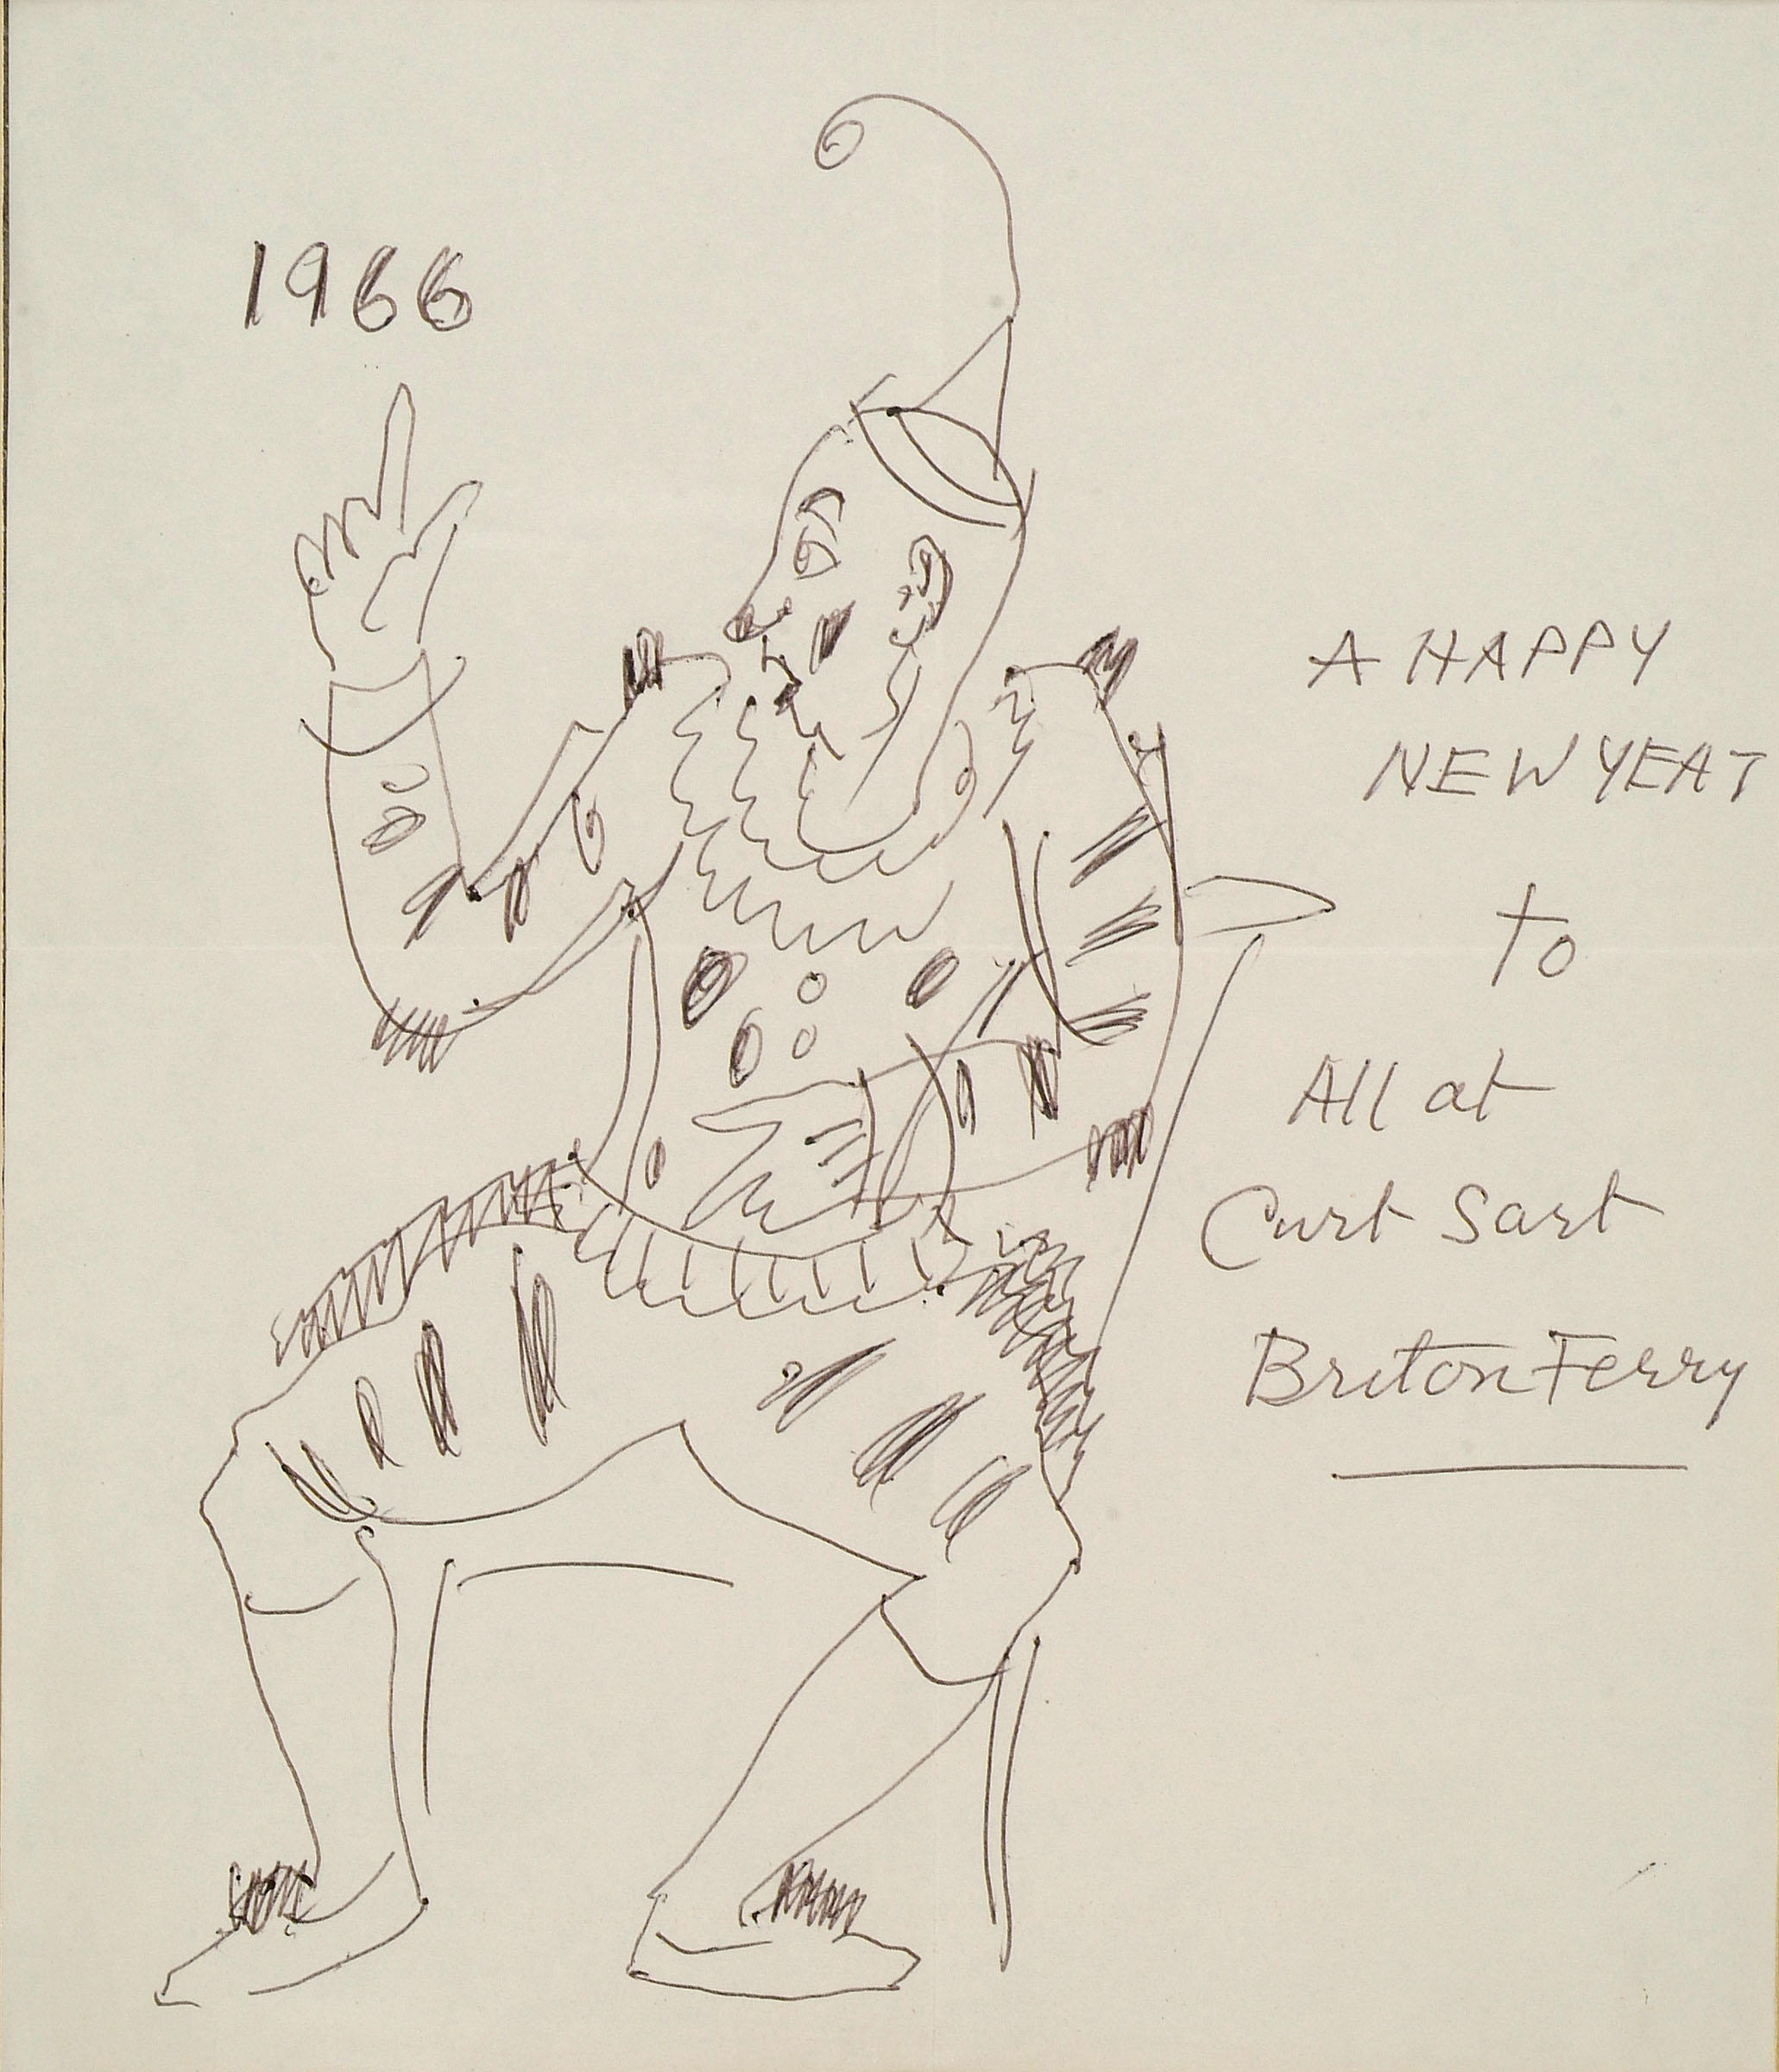 1966
A HAPPY
NEW YEAR
to
All at
Curt Sart
Briton Ferry